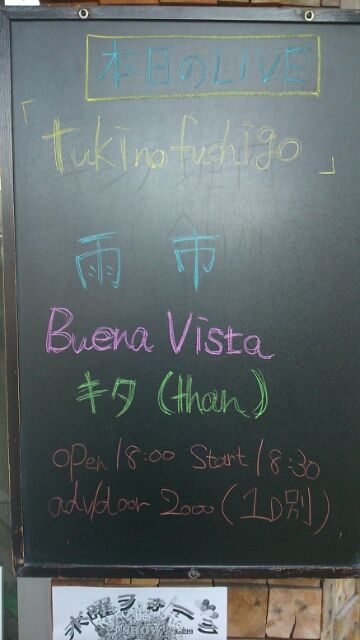 本日のLIVE
「tukinofuchigo」
雨市
Buena Vista
キタ (than)
open 18:00 Start 18:30
adv/door 2000 (1D別)
SHOW